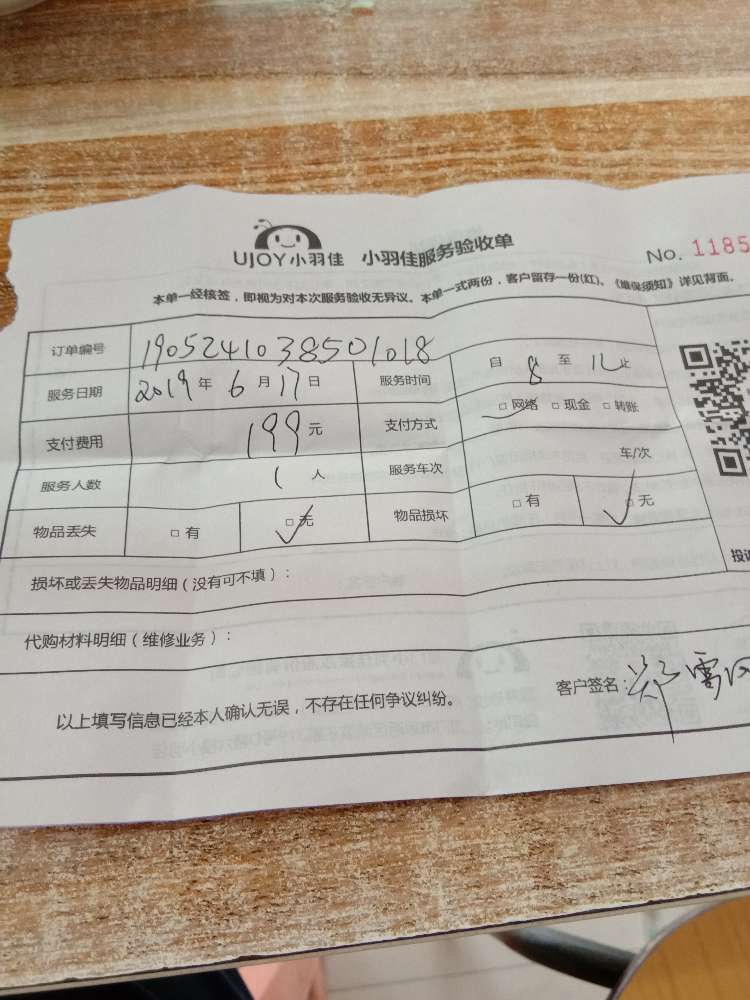 UJOY小羽佳 小羽佳服务验收单
No. 1185
本单一经核签，即视为对本次服务验收无异议。本单一式两份，客户留存一份(红)、《维保须知》详见背面。
订单编号 1905241038501018
服务日期 2019 年 6 月 17 日 服务时间 自 8 至 12 止
支付费用 199 元 支付方式 □ 网络 □ 现金 □ 转账
服务人数 1 人 服务车次 车/次
物品丢失 □ 有 □ 无 物品损坏 □ 有 □ 无
投诉
损坏或丢失物品明细（没有可不填）：
代购材料明细（维修业务）：
客户签名：郑雪
以上填写信息已经本人确认无误，不存在任何争议纠纷。